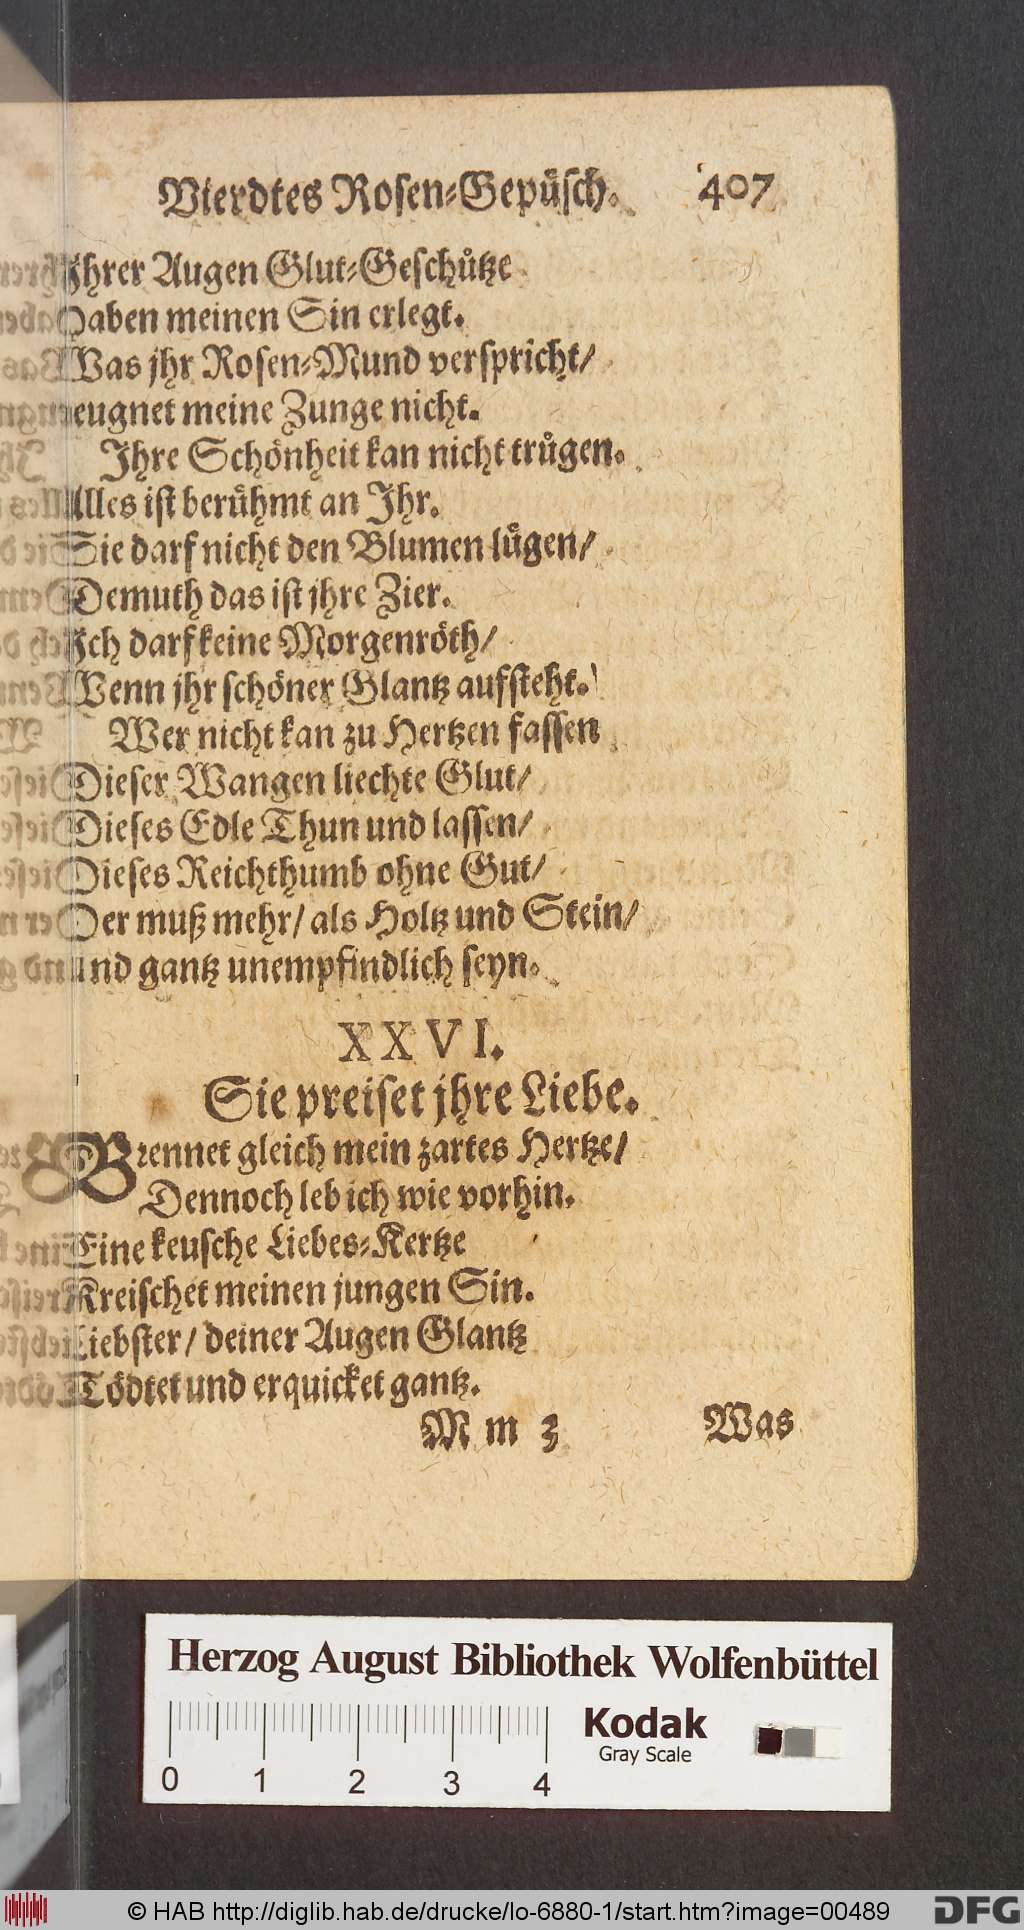 Vierdtes Rosen-Gepüsch. 407
Ihrer Augen Glut-Geschütze
Haben meinen Sin erlegt.
Was jhr Rosen-Mund verspricht/
Leugnet meine Zunge nicht.
Ihre Schönheit kan nicht trügen.
Alles ist berühmt an Ihr.
Sie darf nicht den Blumen lügen/
Demuth das ist jhre Zier.
Ich darf keine Morgenröth/
Wenn jhr schöner Glantz aufsteht.
Wer nicht kan zu Hertzen fassen
Dieser Wangen liechte Glut/
Dieses Edle Thun und lassen/
Dieses Reichthumb ohne Gut/
Der muß mehr/ als Holtz und Stein/
und gantz unempfindlich seyn.
XXVI.
Sie preiset jhre Liebe.
Brennet gleich mein zartes Hertze/
Dennoch leb ich wie vorhin.
Eine keusche Liebes-Kertze
Kreischet meinen jungen Sin.
Liebster/ deiner Augen Glantz
Tödtet und erquicket gantz.
M m 3 Was
Herzog August Bibliothek Wolfenbüttel
Kodak
Gray Scale
0 1 2 3 4
© HAB http://diglib.hab.de/drucke/lo-6880-1/start.htm?image=00489
DFG